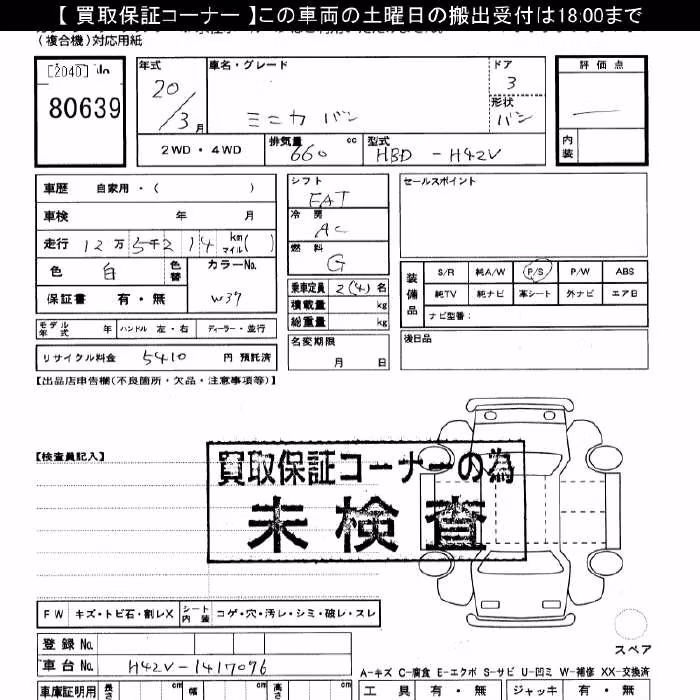 【 買取保証コーナー 】この車両の土曜日の搬出受付は18:00まで
（複合機）対応用紙
[2040]
80639
年式
20/3月
車名・グレード
ミニカ バン
ドア
3
形状
バン
評価点
内装
2WD・4WD
排気量 660 cc
型式 HBD - H42V
車歴 自家用・（ ）
車検 年 月
走行 12万5千214 km マイル( )
色 白 色替
カラーNo. W37
保証書 有・無
モデル年式 年 ハンドル 左・右 ディーラー・並行
リサイクル料金 5410 円 預託済
シフト FAT
冷房 AC
燃料 G
乗車定員 2(4)名
積載量 kg
総重量 kg
名変期限
月 日
セールスポイント
装備品
S/R 純A/W P/S P/W ABS
純TV 純ナビ 革シート 外ナビ エアB
ナビ型番：
後日品
【出品店申告欄(不良箇所・欠品・注意事項等)】
【検査員記入】
買取保証コーナーの為
未検査
FW キズ・トビ石・割レX シート内装 コゲ・穴・汚レ・シミ・破レ・スレ
スペア
登録 No.
車台 No. H42V-1417096
A-キズ C-腐食 E-エクボ S-サビ U-凹ミ W-補修 XX-交換済
車庫証明用 長さ cm 幅 cm 高さ cm
工具 有・無 ジャッキ 有・無